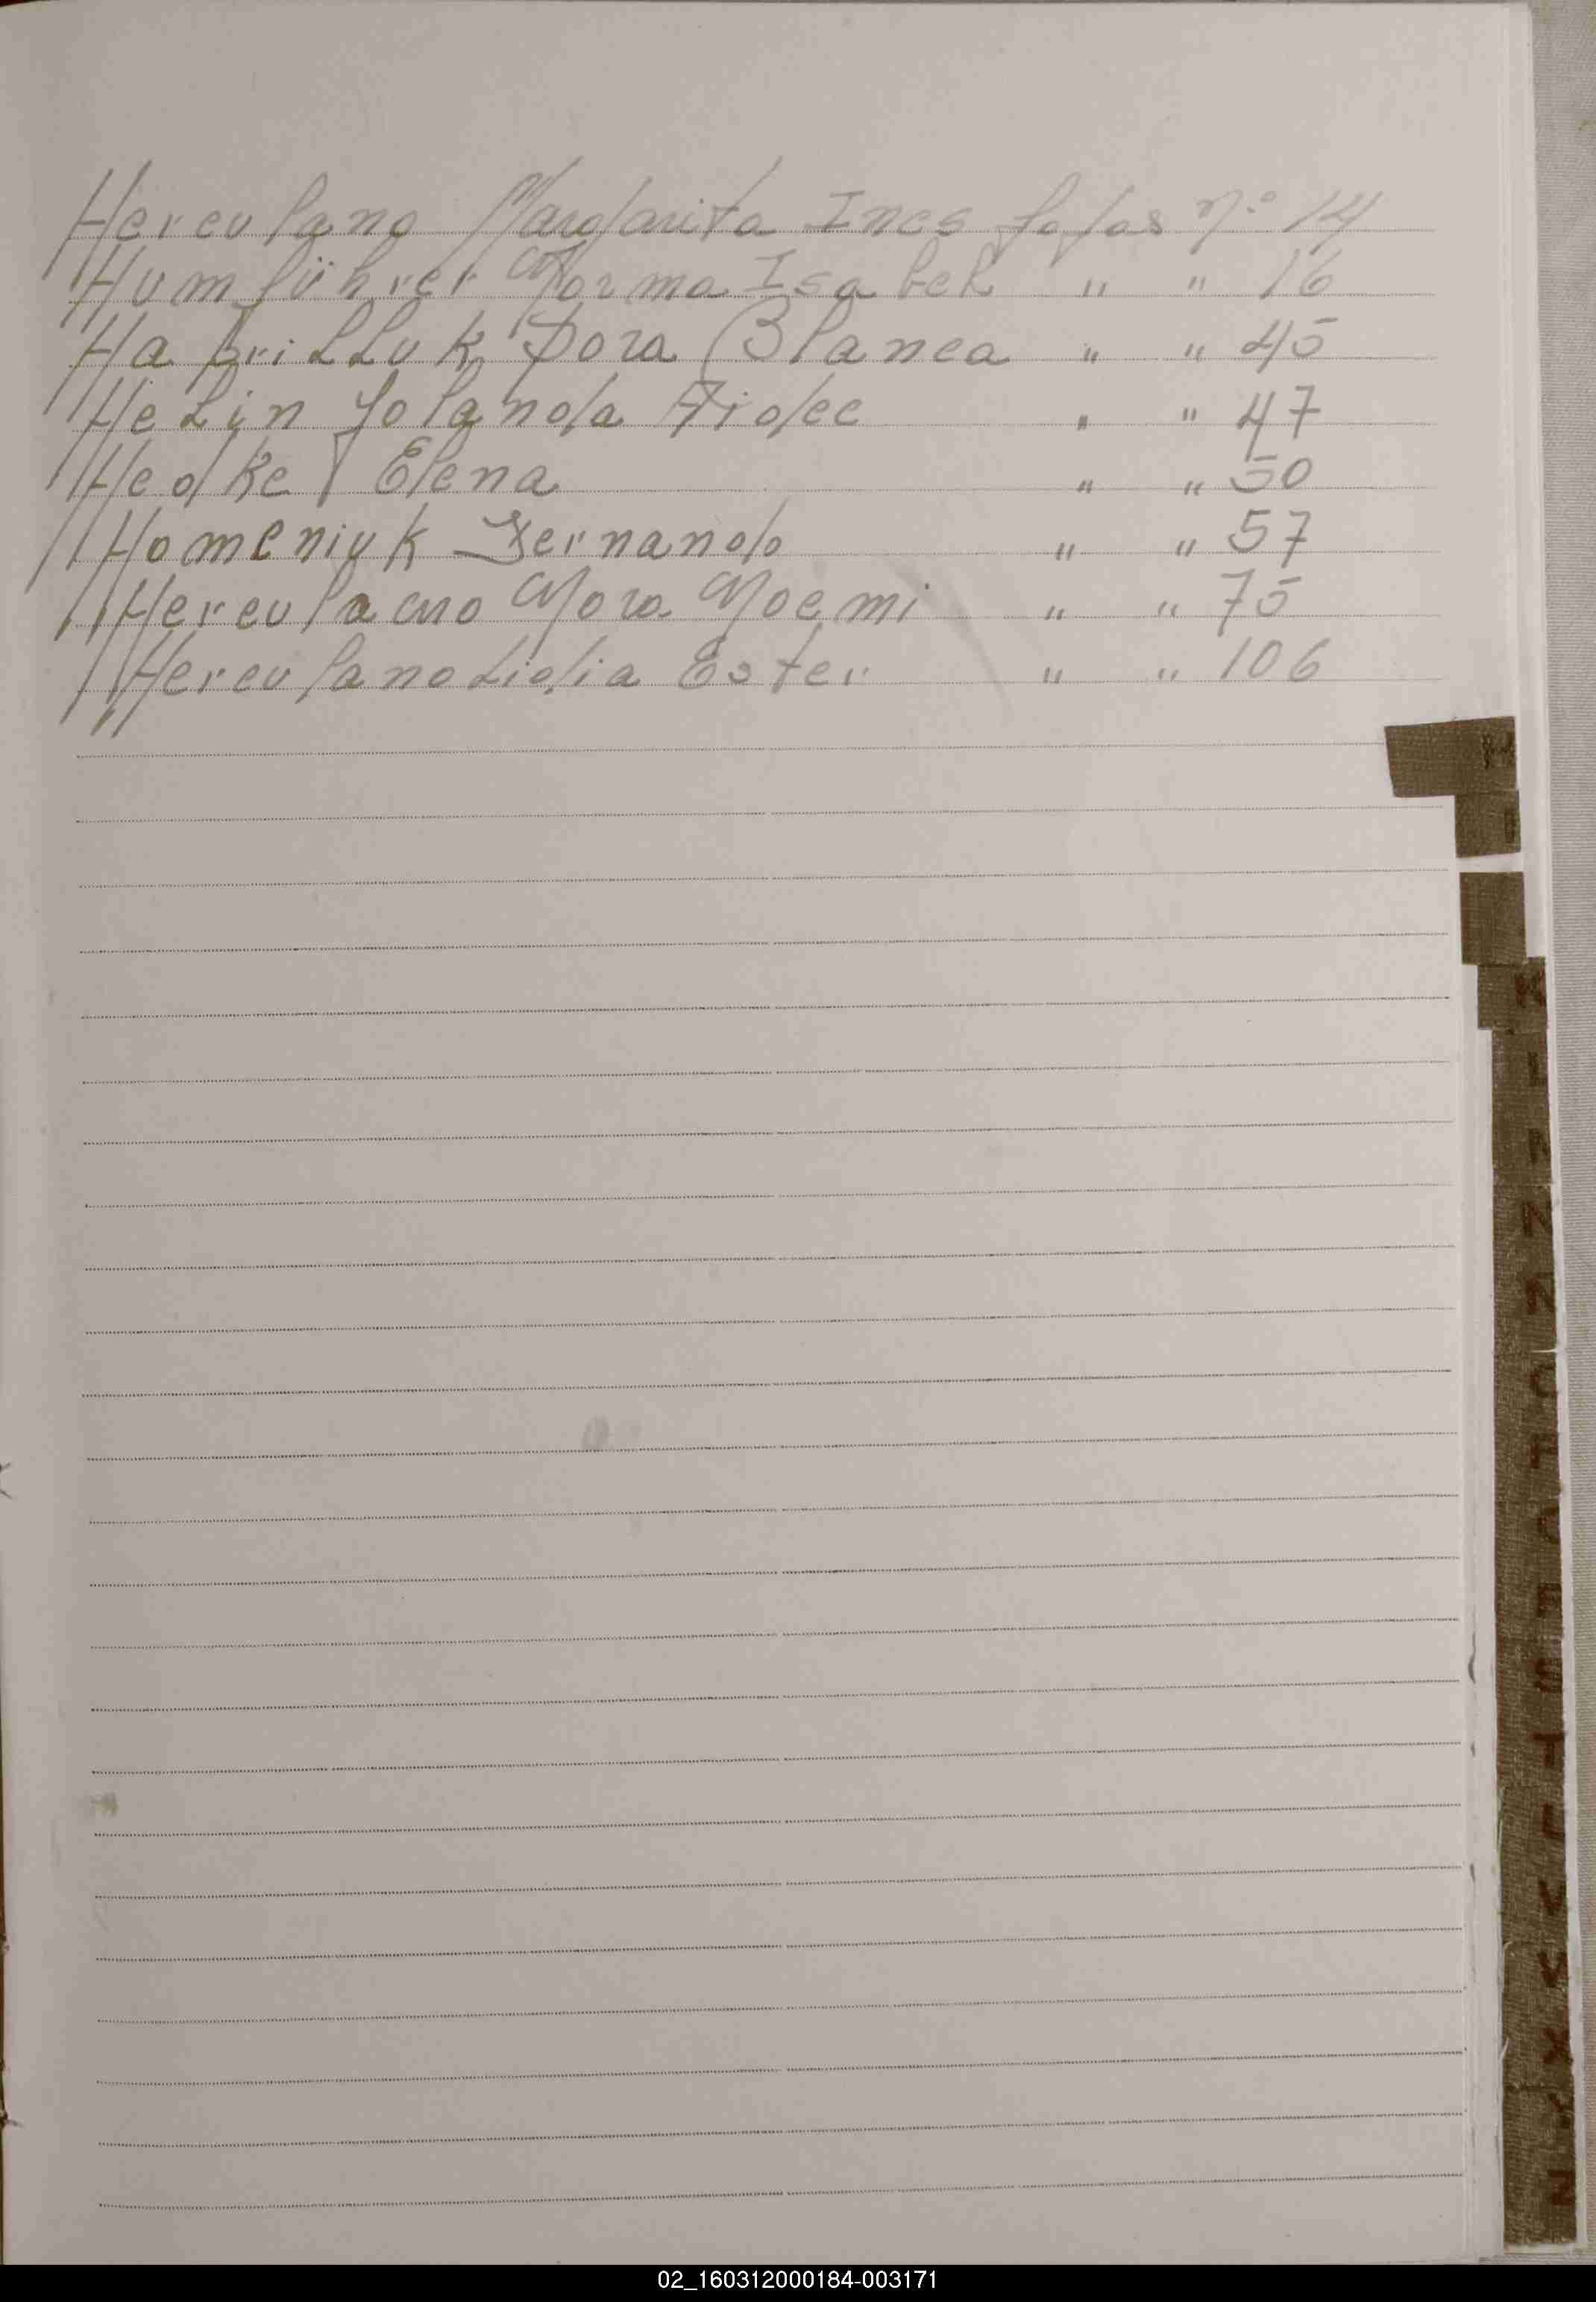 Herculano Margarita Ines fojas n.º 14
Humführer Norma Isabel " " 16
Habrilluk Dora Blanca " " 45
Helin Yolanda Aidee " " 47
Hedke Elena " " 50
Homeniuk Fernando " " 57
Herculano Nora Noemi " " 75
Herculano Lidia Ester " " 106
H
I
K
L
V
V
X
Y
Z
02_160312000184-003171